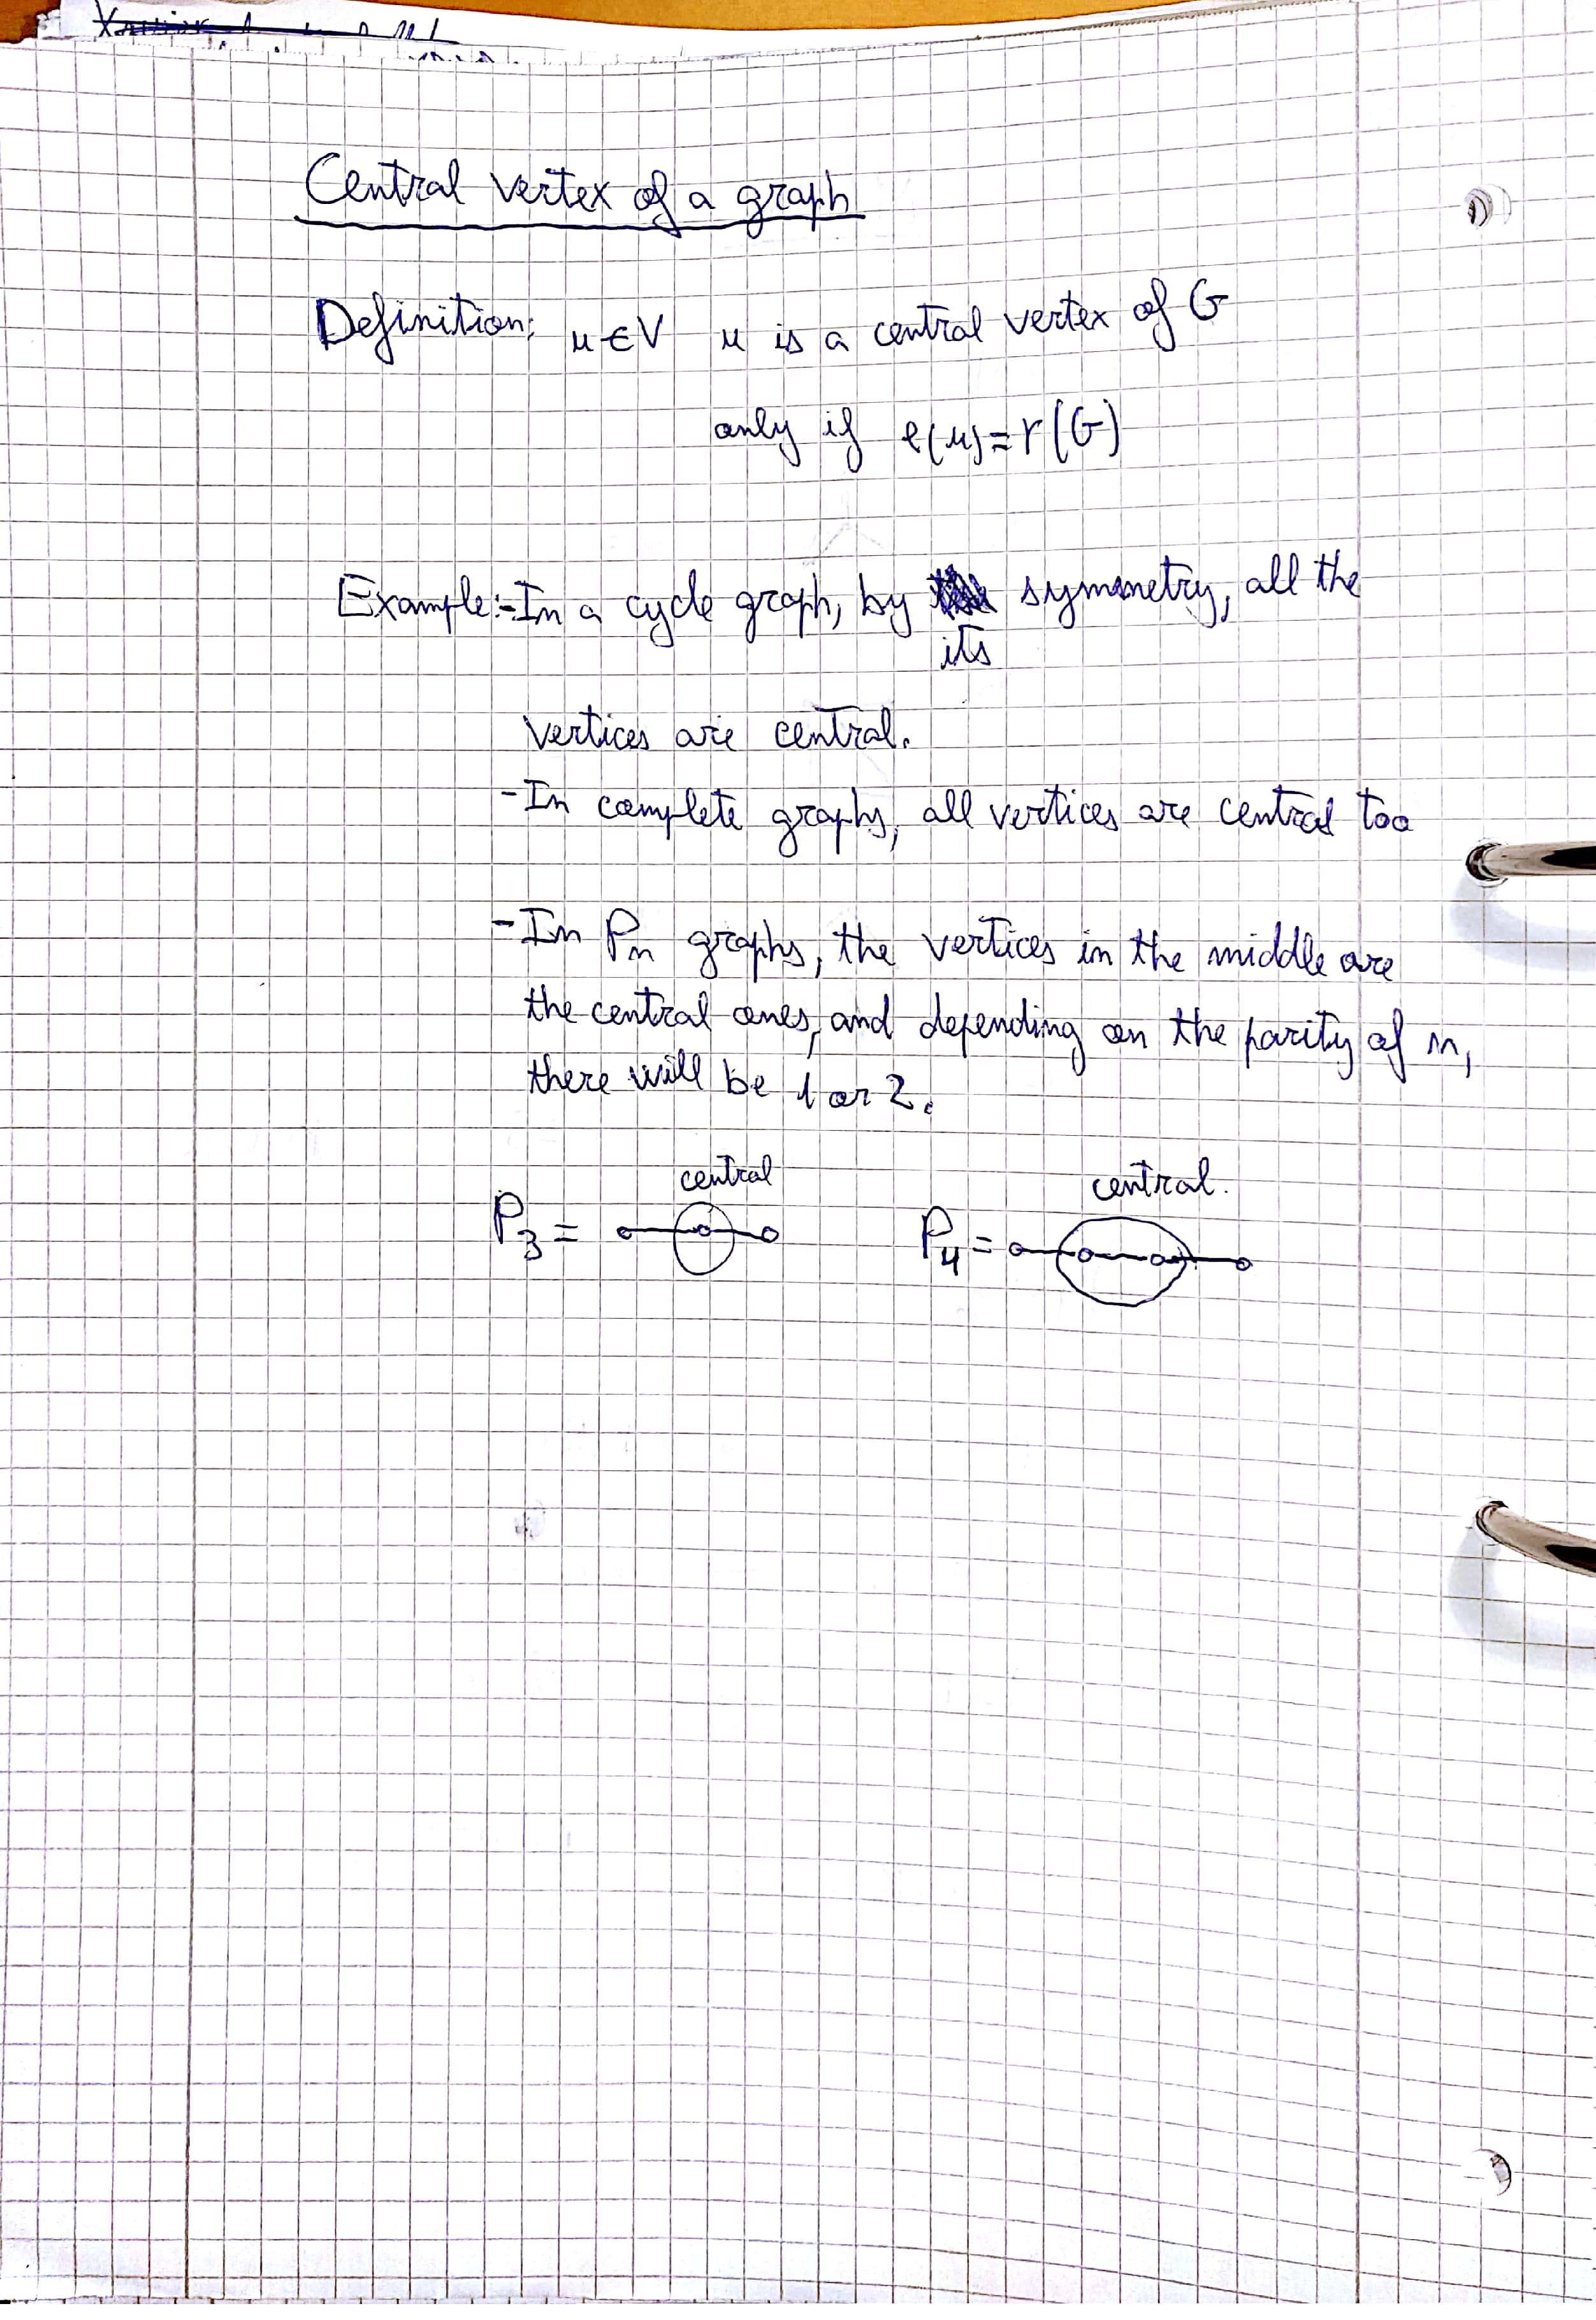 Central vertex of a graph
Definition: u ∈ V u is a central vertex of G
only if e(u) = r(G)
Example: - In a cycle graph, by its symmetry, all the
vertices are central.
- In complete graphs, all vertices are central too
- In Pn graphs, the vertices in the middle are
the central ones, and depending on the parity of n,
there will be 1 or 2.
central
P3 =
central.
P4 =